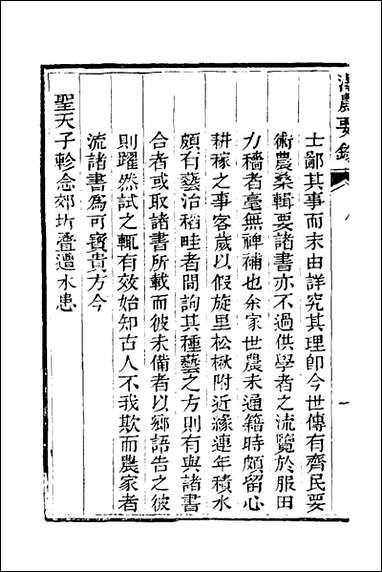 澤農要錄
士鄙其事而末由詳究其理即今世傳有齊民要
術農桑輯要諸書亦不過供學者之流覽於服田
力穡者毫無裨補也余家世農未通籍時頗留心
耕稼之事客歲以假旋里松楸附近緣連年積水
頗有藝治稻畦者間詢其種藝之方則有與諸書
合者或取諸書所載而彼未備者以鄉語告之彼
則躍然試之輒有效始知古人不我欺而農家者
流諸書爲可寶貴方今
聖天子軫念郊圻疊遭水患